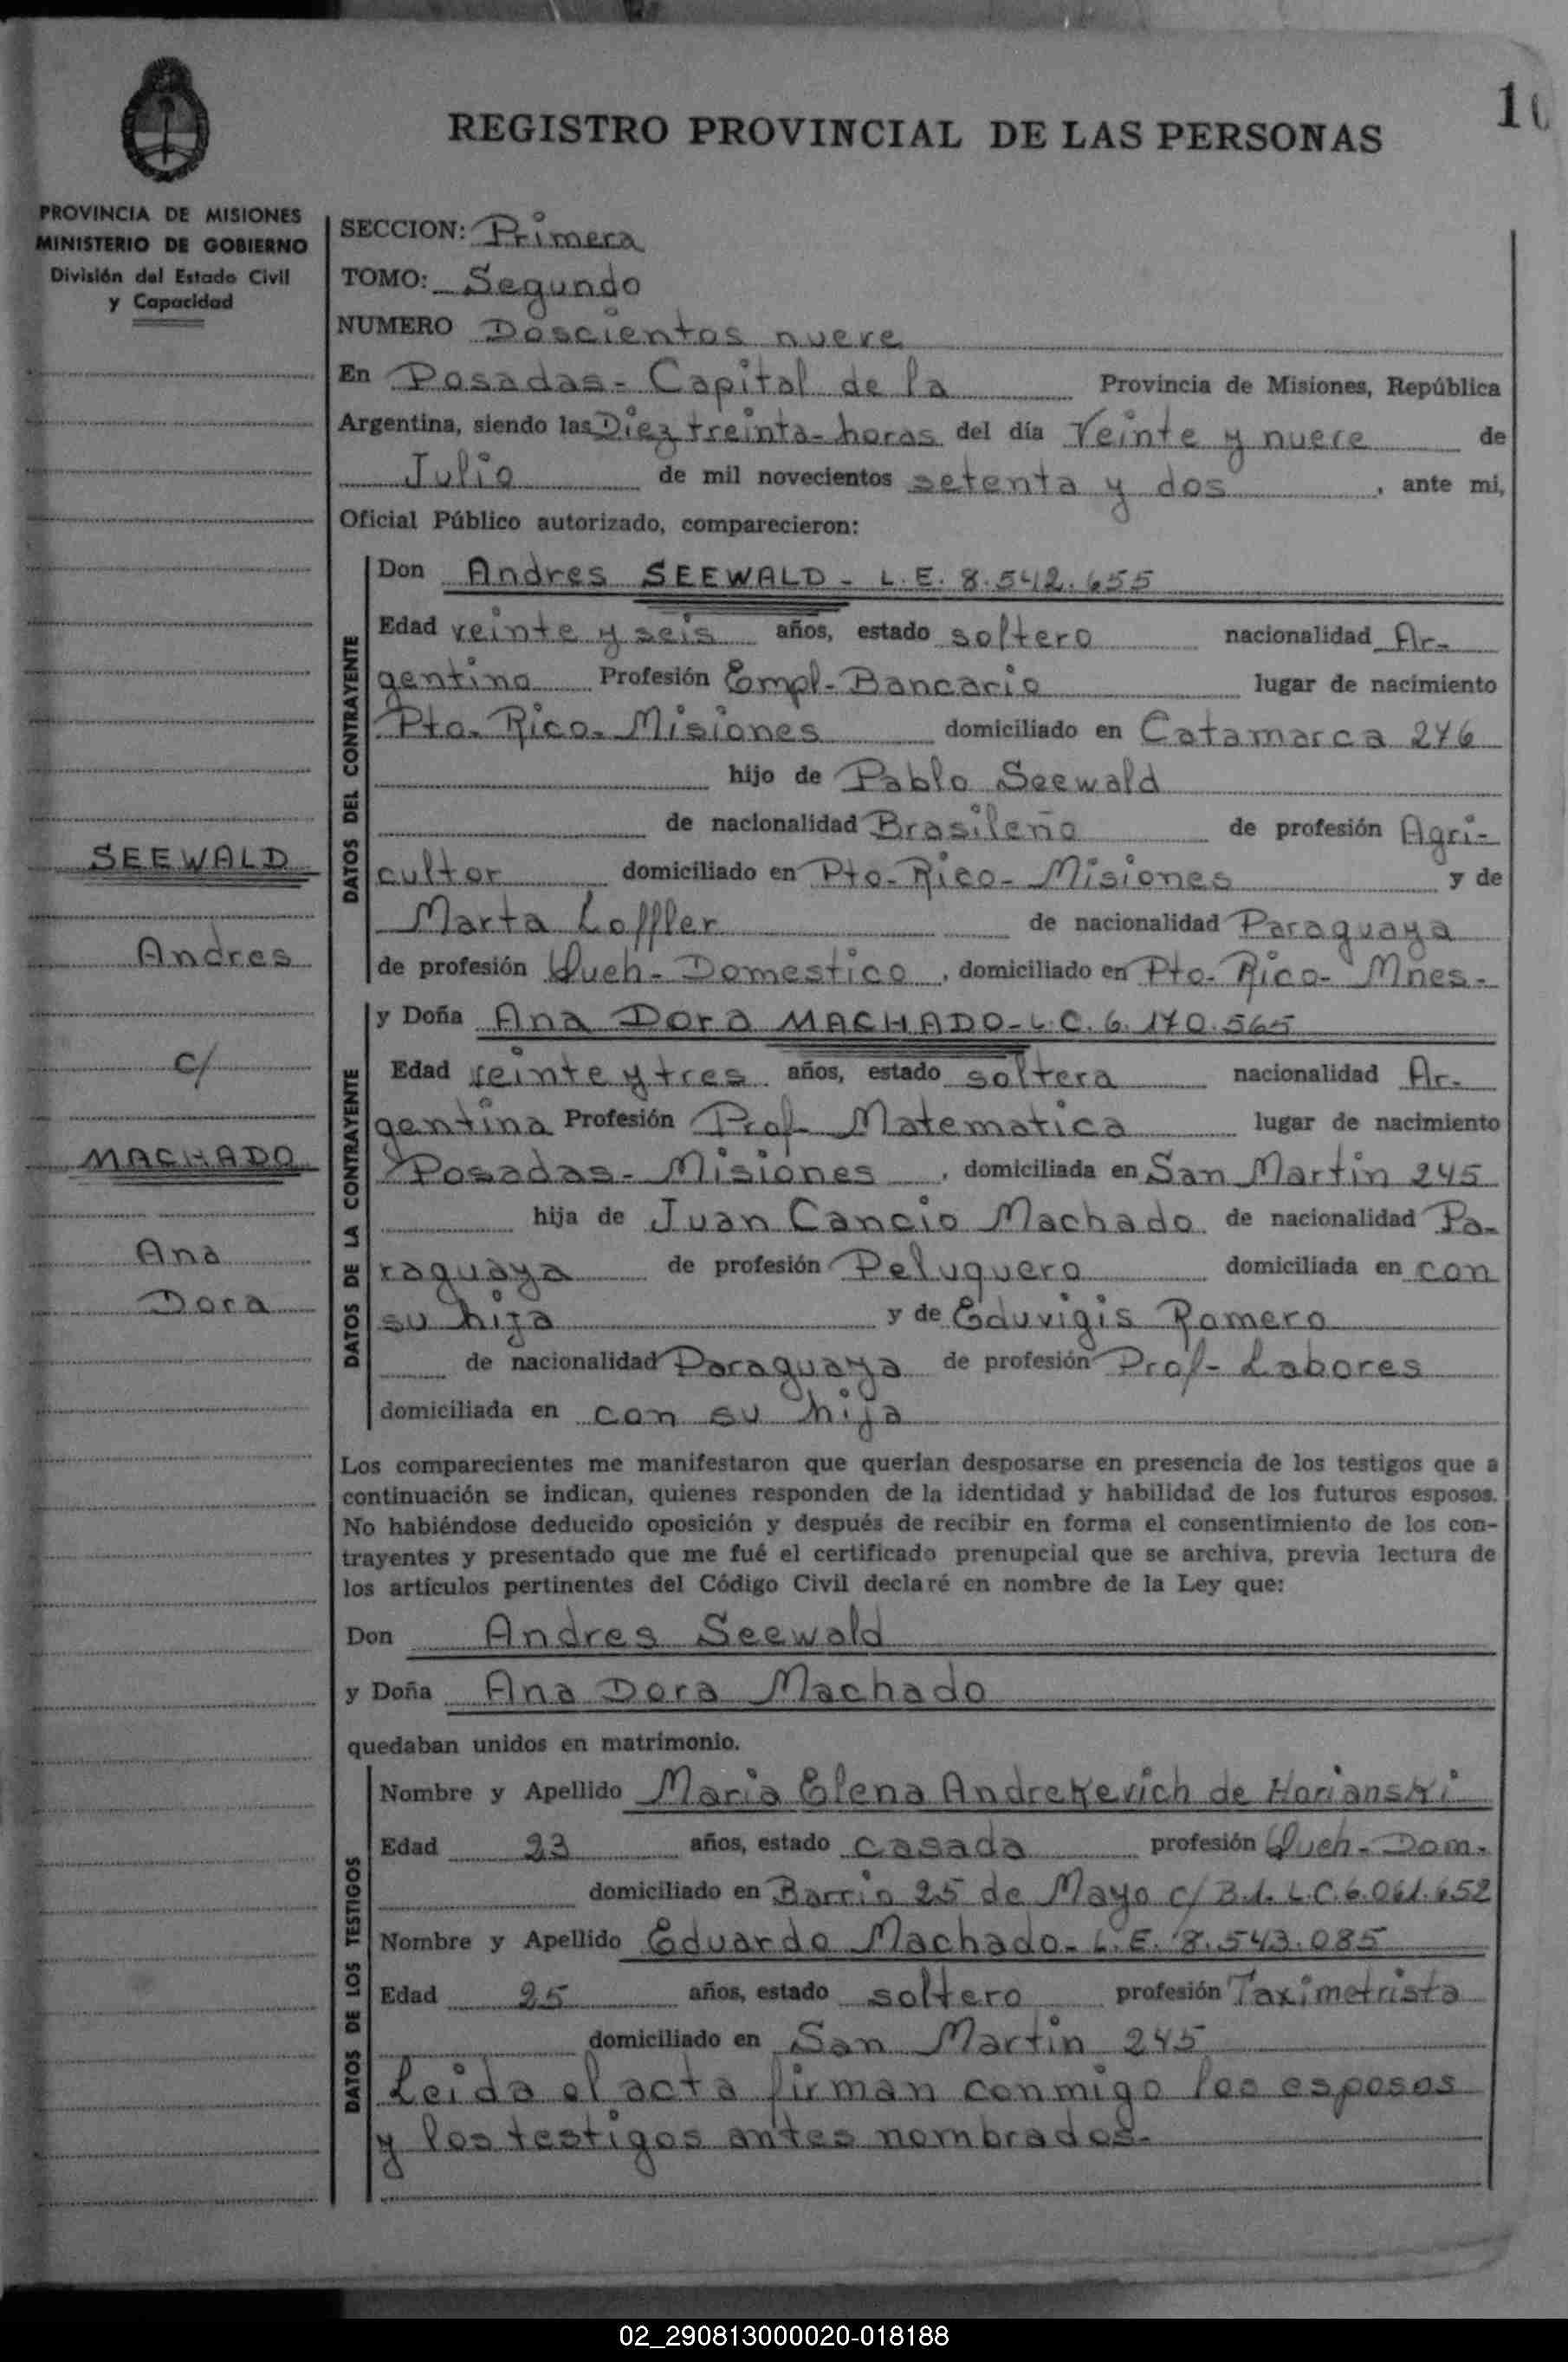 10
REGISTRO PROVINCIAL DE LAS PERSONAS
PROVINCIA DE MISIONES
MINISTERIO DE GOBIERNO
División del Estado Civil
y Capacidad
SEEWALD
Andres
c/
MACHADO
Ana
Dora
SECCION: Primera
TOMO: Segundo
NUMERO Doscientos nueve
En Posadas - Capital de la Provincia de Misiones, República
Argentina, siendo las Diez treinta - horas del día Veinte y nueve de
Julio de mil novecientos setenta y dos, ante mi,
Oficial Público autorizado, comparecieron:
DATOS DEL CONTRAYENTE
Don Andres SEEWALD - L.E. 8.542.655
Edad veinte y seis años, estado soltero nacionalidad Ar-
gentino Profesión Empl- Bancario lugar de nacimiento
Pto. Rico. Misiones domiciliado en Catamarca 246
hijo de Pablo Seewald
de nacionalidad Brasileño de profesión Agri-
cultor domiciliado en Pto- Rico- Misiones y de
Marta Loffler de nacionalidad Paraguaya
de profesión Queh- Domestico, domiciliado en Pto- Rico- Mnes-
DATOS DE LA CONTRAYENTE
y Doña Ana Dora MACHADO - L.C. 6.170.565
Edad veinte y tres años, estado soltera nacionalidad Ar-
gentina Profesión Prof- Matematica lugar de nacimiento
Posadas- Misiones, domiciliada en San Martin 245
hija de Juan Cancio Machado de nacionalidad Pa-
raguaya de profesión Peluquero domiciliada en con
su hija y de Eduvigis Romero
de nacionalidad Paraguaya de profesión Prof- Labores
domiciliada en con su hija
Los comparecientes me manifestaron que querían desposarse en presencia de los testigos que a
continuación se indican, quienes responden de la identidad y habilidad de los futuros esposos.
No habiéndose deducido oposición y después de recibir en forma el consentimiento de los con-
trayentes y presentado que me fué el certificado prenupcial que se archiva, previa lectura de
los artículos pertinentes del Código Civil declaré en nombre de la Ley que:
Don Andres Seewald
y Doña Ana Dora Machado
quedaban unidos en matrimonio.
DATOS DE LOS TESTIGOS
Nombre y Apellido Maria Elena Andrekevich de Harianski
Edad 23 años, estado casada profesión Queh- Dom.
domiciliado en Barrio 25 de Mayo c/ B.1. L.C. 6.061.652
Nombre y Apellido Eduardo Machado - L.E. 8.543.085
Edad 25 años, estado soltero profesión Taximetrista
domiciliado en San Martin 245
Leida el acta firman conmigo los esposos
y los testigos antes nombrados.
02_290813000020-018188